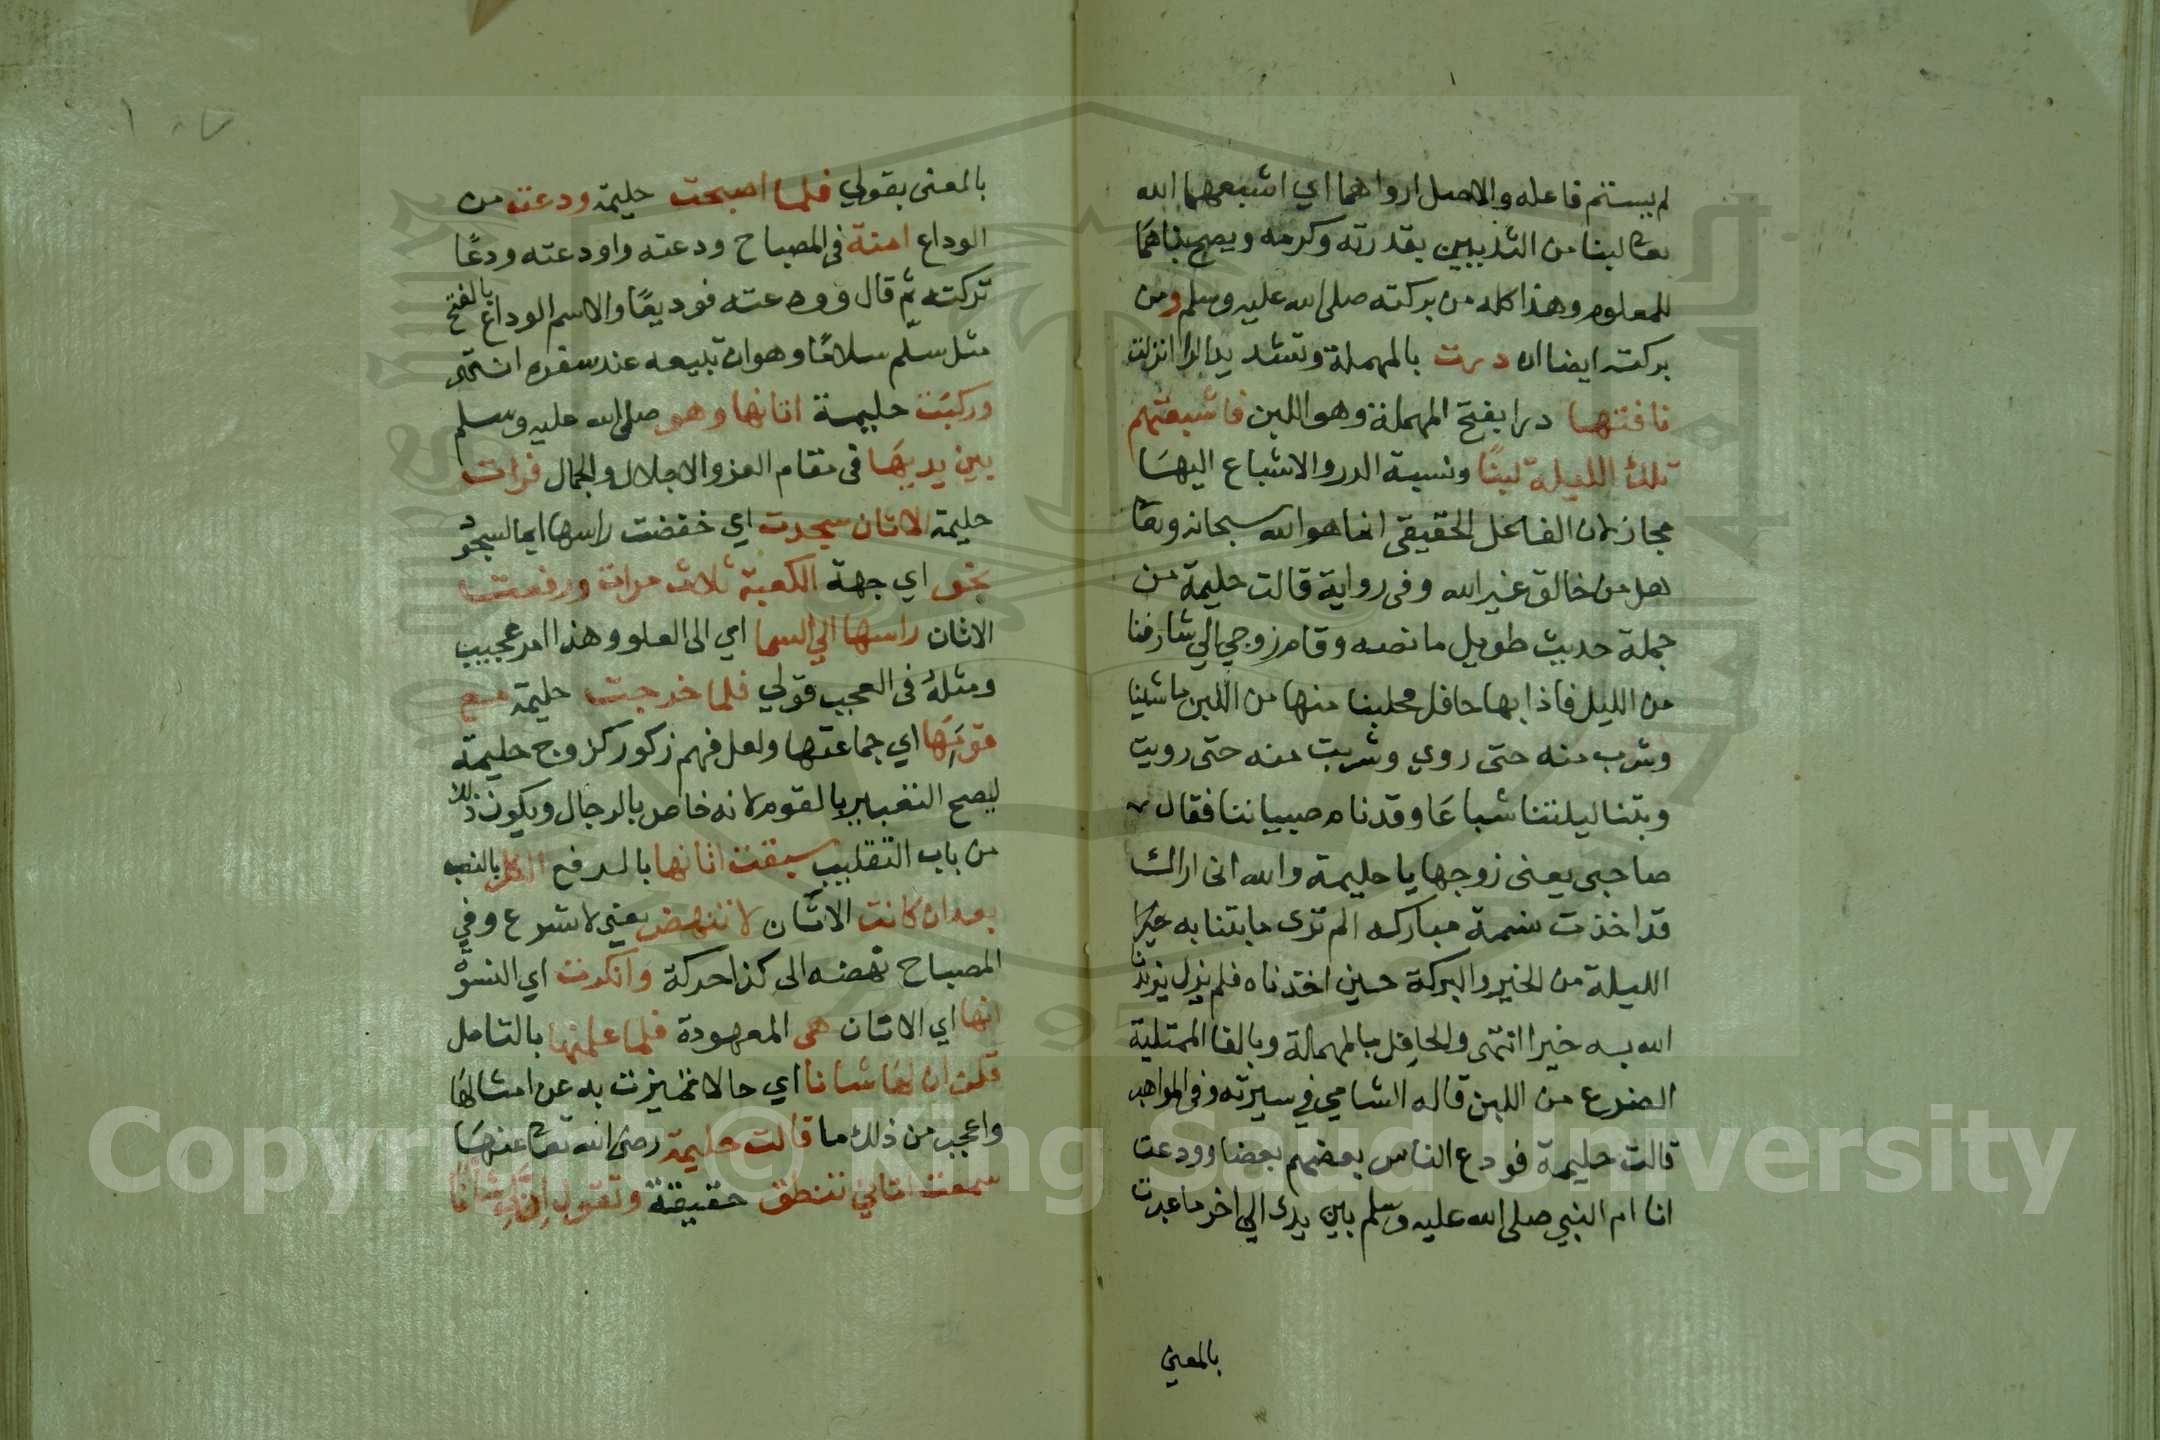 لم يستتم فاعله والاصل ارواهما اي اشبعهما الله
تعا لبنا من الثديين بقدرته وكرمه ويصح بناهما
للمعلوم وهذا كله من بركته صلى الله عليه وسلم ومن
بركته ايضا ان درت بالمهملة وتشديد الرا انزلت
ناقتها درا بفتح المهملة وهو اللبن فاشبعتهم
تلك الليلة لبنًا ونسبة الدر والاشباع اليها
مجاز لان الفاعل الحقيقي انما هو الله سبحانه وتعا
هل من خالق غير الله وفى رواية قالت حليمة من
جملة حديث طويل ما نصه وقام زوجي الي شارفنا
من الليل فاذا بها حافل فحلبنا منها من اللبن ما شينا
وشرب منه حتى روي وشربت منه حتى رويت
وبتنا ليلتنا شباعًا وقد نام صبياننا فقال
صاحبي يعنى زوجها يا حليمة والله انى اراك
قد اخذت نسمة مباركه الم ترى ما بتنا به خيرا
الليلة من الخير والبركة حين اخذناه فلم يزل يزيدنا
الله به خيرا انتهى والحافل بالمهملة وبالفا الممتلية
الضرع من اللبن قاله الشامي في سيرته وفى المواهب
قالت حليمة فودع الناس بعضهم بعضا وودعت
انا ام النبي صلى الله عليه وسلم بين يدى الي اخر ما عبرت
بالمعنى
بالمعنى بقولي فلما اصبحت حليمة ودعت من
الوداع امنة فى المصباح ودعته واودعته ودعًا
تركته ثم قال وودعته توديعًا والاسم الوداع بالفتح
مثل سلّم سلامًا وهو ان تشيعه عند سفره انتهى
وركبت حليمة اتانها وهو صلى الله عليه وسلم
بين يديها فى مقام العز والاجلال والجمال فرات
حليمة الاتان سجدت اي خفضت راسها ايما لسجود
نحو اي جهة الكعبة ثلاث مرات ورفعت
الاتان راسها الي السما اي الى العلو وهذا امر عجيب
ومثله فى العجب قولي فلما خرجت حليمة مع
قومها اي جماعتها ولعل فيهم زكور كزوج حليمة
ليصح التعبير بالقوم لانه خاص بالرجال ويكون ذلك
من باب التغليب سبقت اتانها بالرفع الكل بالنصب
بعد ان كانت الاتان لا تنهض يعني لا تسرع وفي
المصباح نهضه الى كذا حركة وانكرت اي النسوة
انها اي الاتان هى المعهودة فلما علمنها بالتامل
قلن ان لها شانا اي حالا تميزت به عن امثالها
واعجب من ذلك ما قالت حليمة رضى الله تعا عنها
سمعت اتاني تنطق حقيقة وتقول ان لي شأنا
Copyright © King Saud University